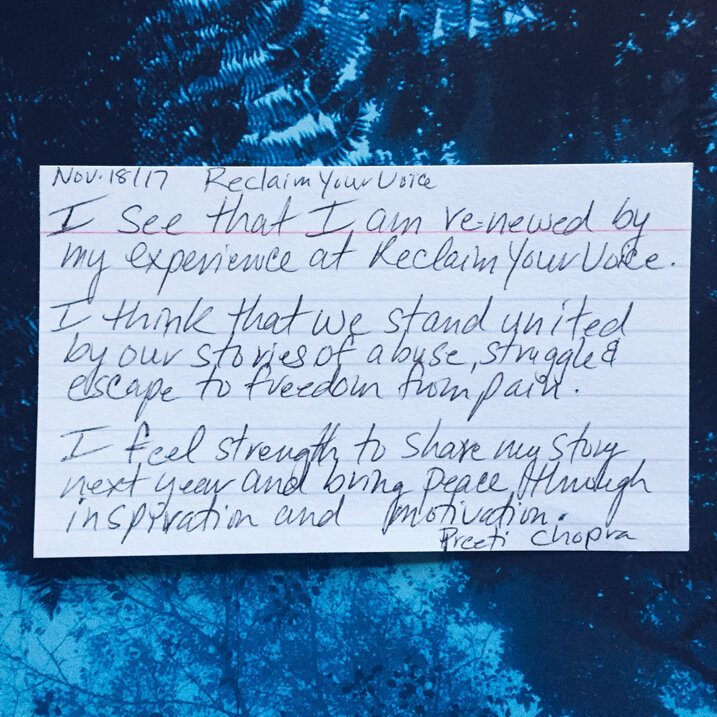 Nov. 18/17 Reclaim Your Voice
I see that I am re-newed by
my experience at Reclaim Your Voice.
I think that we stand united
by our stories of abuse, struggle &
escape to freedom from pain.
I feel strength to share my story
next year and bring peace through
inspiration and motivation.
Preeti Chopra